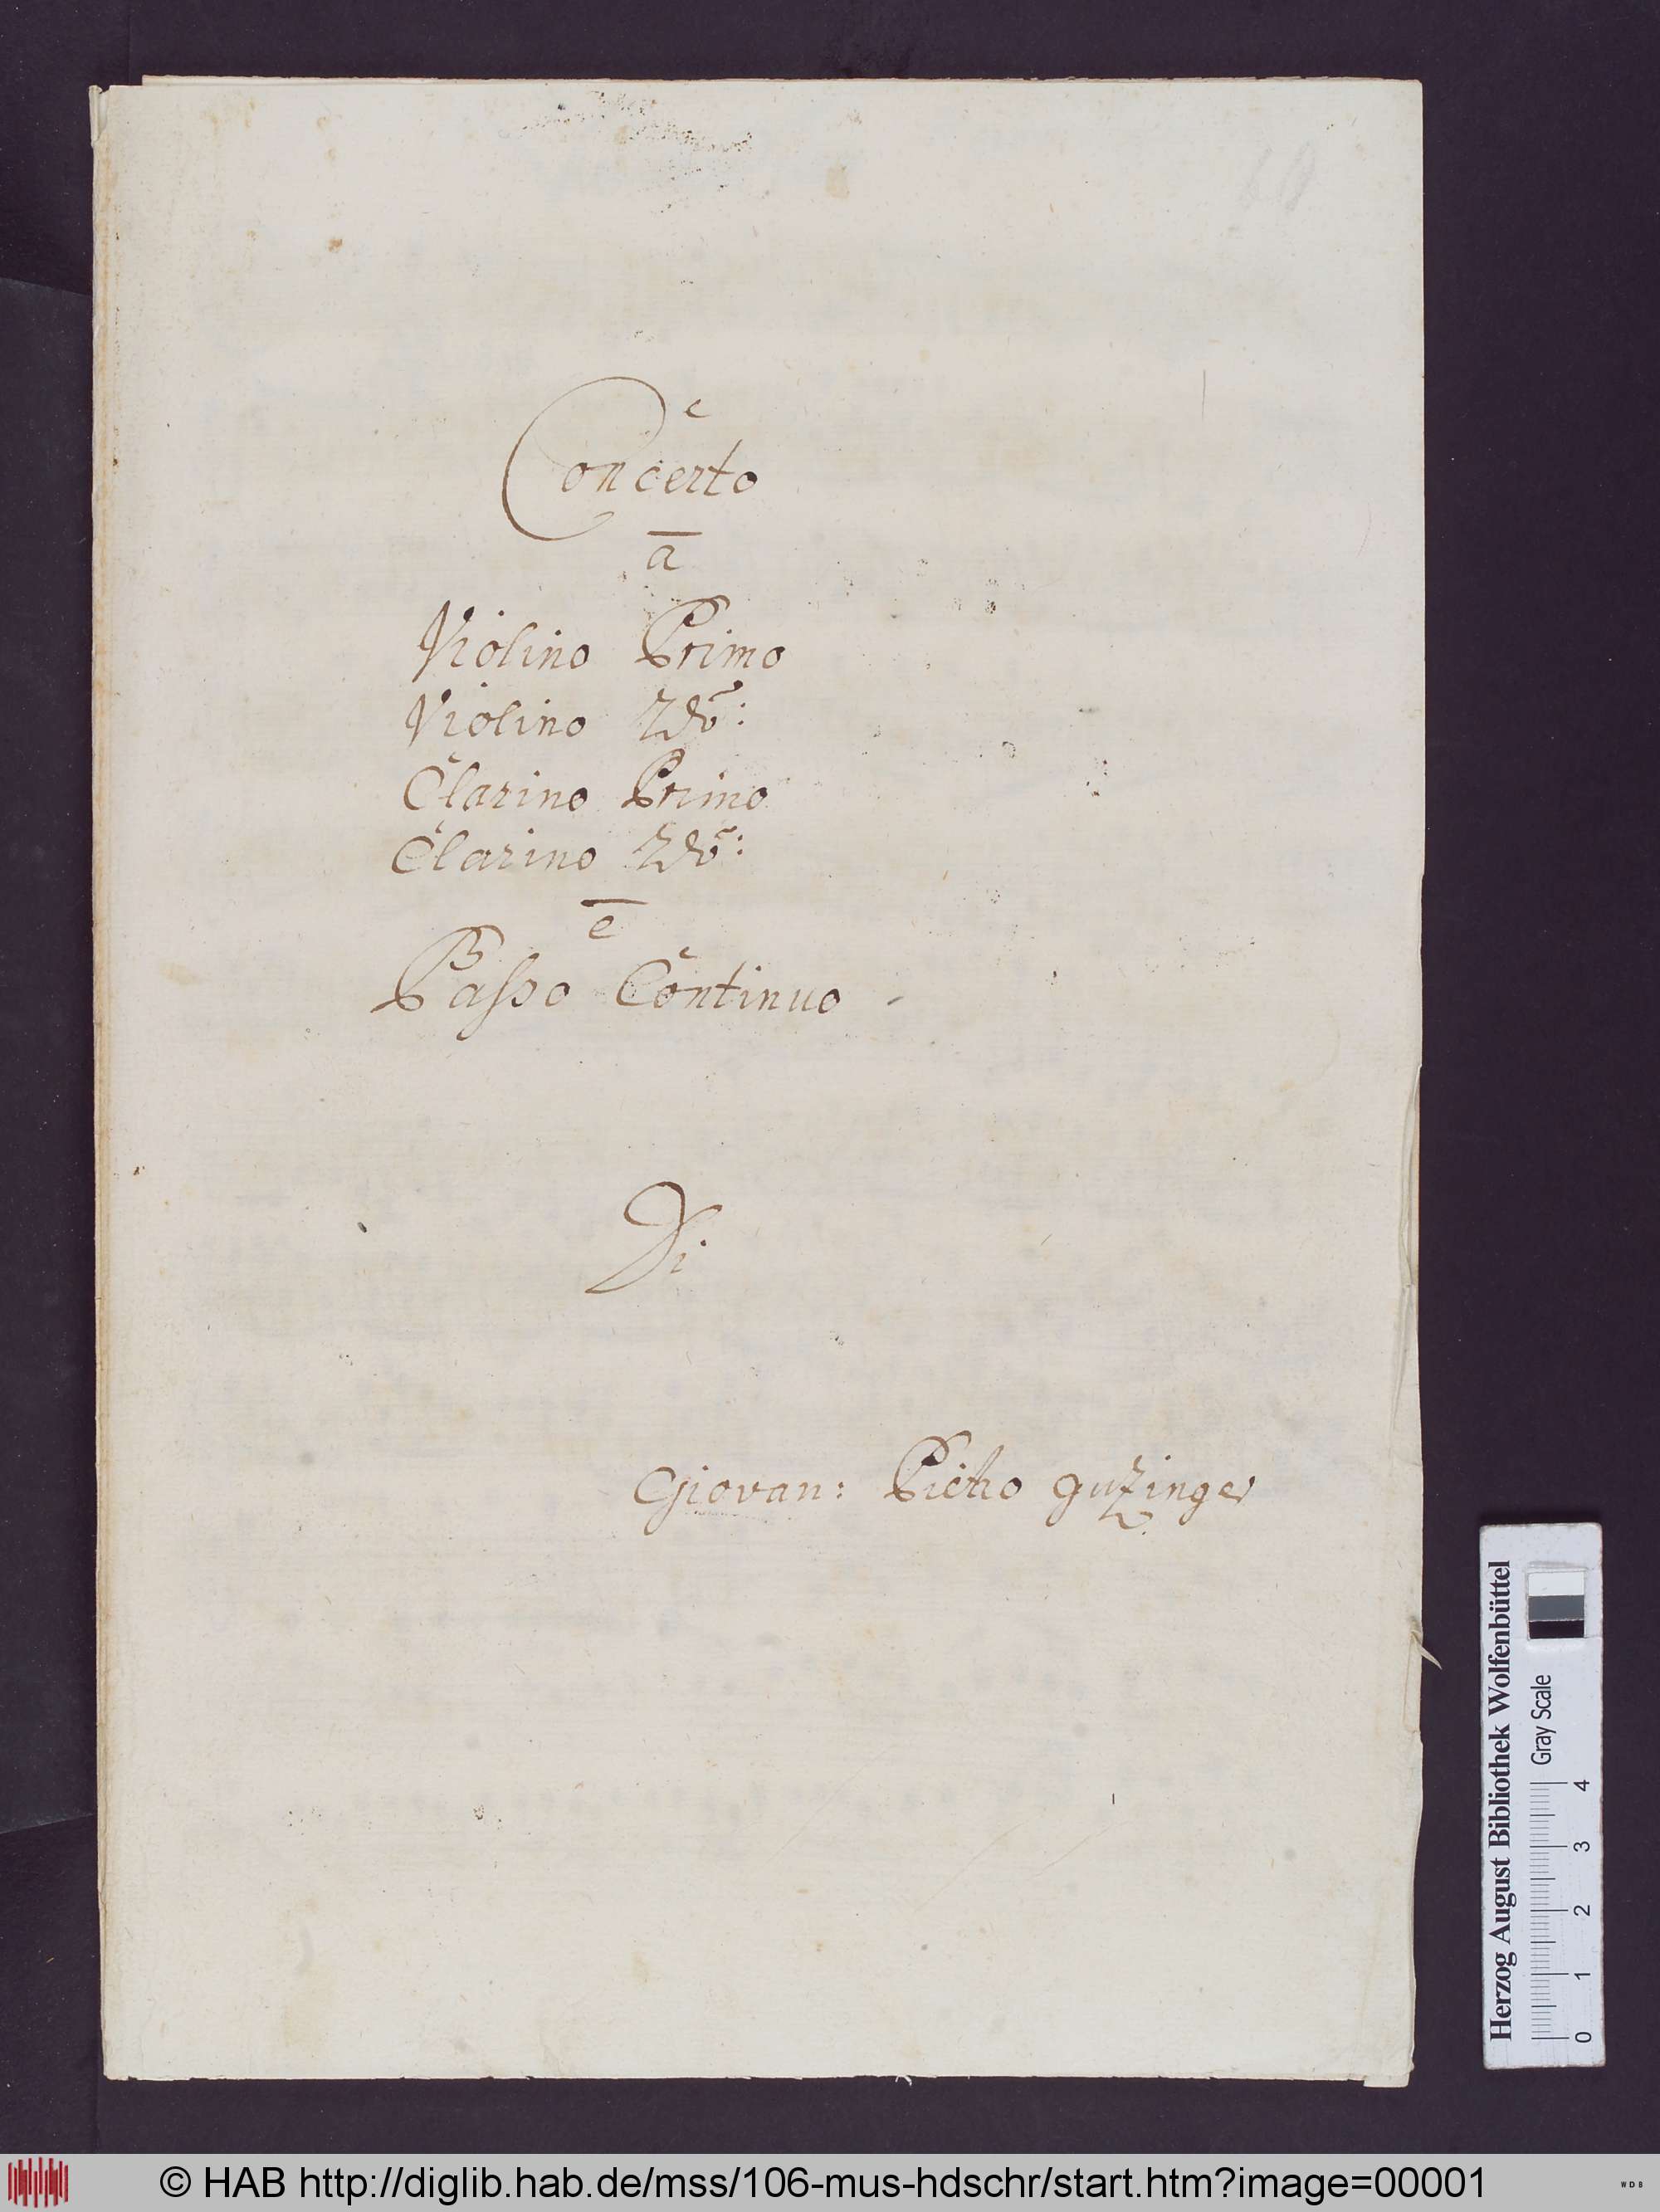 Concerto
a
Violino Primo
Violino 2do:
Clarino Primo
Clarino 2do:
e
Basso Continuo
Di
Giovan: Pietro Guzinger
Herzog August Bibliothek Wolfenbüttel
Gray Scale
0 1 2 3 4
© HAB http://diglib.hab.de/mss/106-mus-hdschr/start.htm?image=00001
WDB